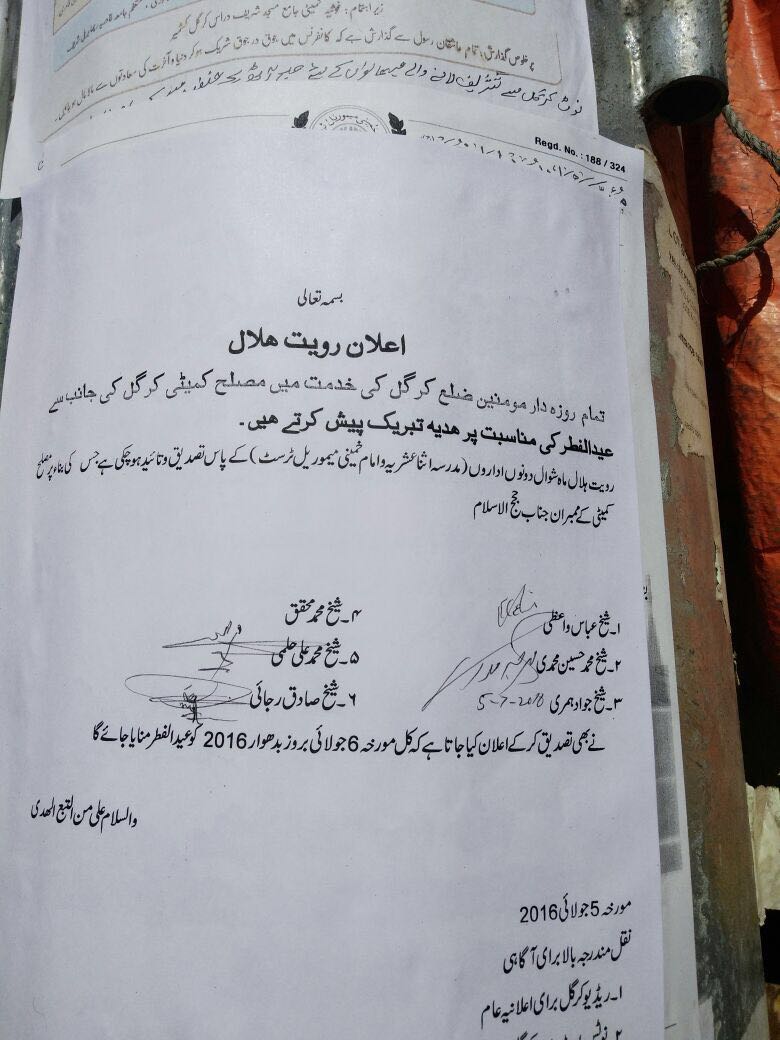 زیر اہتمام: کمیٹی جامع مسجد شریف دراس کرگل کشمیر
پر خلوص گذارش: تمام عاشقان رسول سے گذارش ہے کہ کانفرنس میں جوق در جوق شریک ہوکر دنیا و آخرت کی سعادتوں سے مالا مال ہو جائیں
نوٹ کرگل سے تشریف لانے والے مہمانوں کے لئے
Regd. No. : 188 / 324
بسمہ تعالی
اعلان رویت ھلال
تمام روزہ دار مومنین ضلع کرگل کی خدمت میں مصلح کمیٹی کرگل کی جانب سے
عیدالفطر کی مناسبت پر ھدیہ تبریک پیش کرتے ھیں۔
رویت ہلال ماہ شوال دونوں اداروں (مدرسہ اثنا عشریہ و امام خمینی میموریل ٹرسٹ) کے پاس تصدیق و تائید ہو چکی ہے جس کی بناء پر مصلح
کمیٹی کے ممبران جناب حجج الاسلام
۱۔شیخ عباس واعظی
۲۔شیخ محمد حسین محمدی
۳۔شیخ جواد ہمری 5-7-2016
۴۔شیخ محمد محقق
۵۔شیخ محمد علی حلمی
۶۔شیخ صادق رجائی
نے بھی تصدیق کر کے اعلان کیا جاتا ہے کہ کل مورخہ 6 جولائی بروز بدھوار 2016 کو عید الفطر منایا جائے گا
والسلام علی من التبع الھدی
مورخہ 5 جولائی 2016
نقل مندرجہ بالا برای آگاہی
۱۔ریڈیو کرگل برای اعلانیہ عام